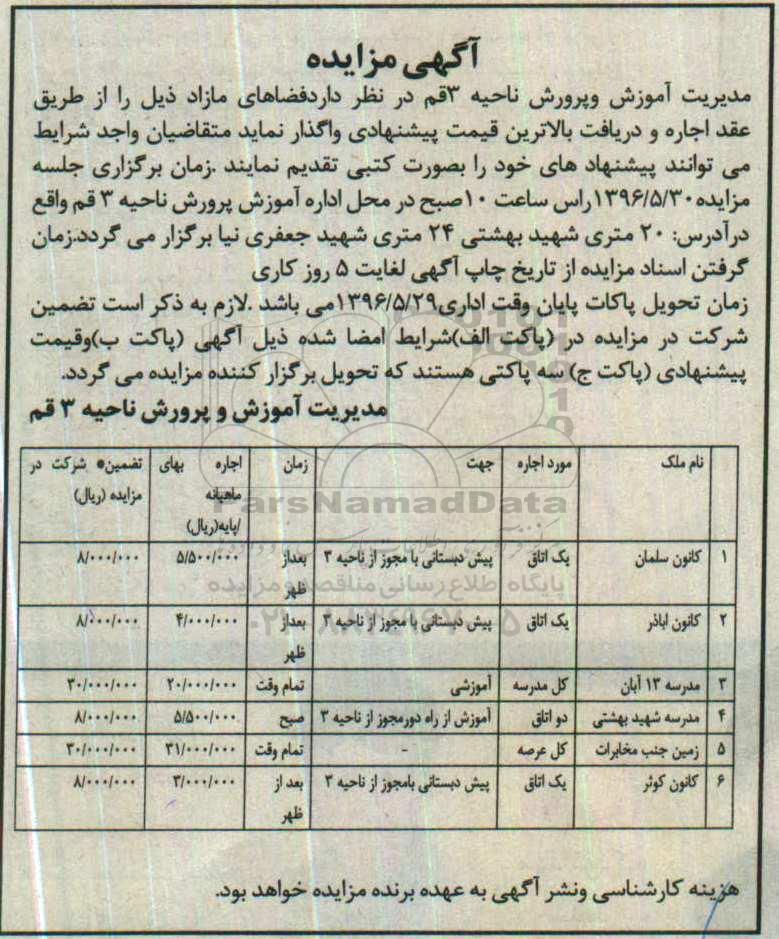 آگهی مزایده
مدیریت آموزش وپرورش ناحیه ۳قم در نظر داردفضاهای مازاد ذیل را از طریق
عقد اجاره و دریافت بالاترین قیمت پیشنهادی واگذار نماید متقاضیان واجد شرایط
می توانند پیشنهاد های خود را بصورت کتبی تقدیم نمایند .زمان برگزاری جلسه
مزایده۱۳۹۶/۵/۳۰راس ساعت ۱۰صبح در محل اداره آموزش پرورش ناحیه ۳ قم واقع
درآدرس: ۲۰ متری شهید بهشتی ۲۴ متری شهید جعفری نیا برگزار می گردد.زمان
گرفتن اسناد مزایده از تاریخ چاپ آگهی لغایت ۵ روز کاری
زمان تحویل پاکات پایان وقت اداری۱۳۹۶/۵/۲۹می باشد .لازم به ذکر است تضمین
شرکت در مزایده در (پاکت الف)شرایط امضا شده ذیل آگهی (پاکت ب)وقیمت
پیشنهادی (پاکت ج) سه پاکتی هستند که تحویل برگزار کننده مزایده می گردد.
مدیریت آموزش و پرورش ناحیه ۳ قم
نام ملک مورد اجاره جهت زمان اجاره بهای ماهیانه /پایه(ریال) تضمین* شرکت در مزایده (ریال)
۱ کانون سلمان یک اتاق پیش دبستانی با مجوز از ناحیه ۳ بعداز ظهر ۵/۵۰۰/۰۰۰ ۸/۰۰۰/۰۰۰
۲ کانون اباذر یک اتاق پیش دبستانی با مجوز از ناحیه ۳ بعداز ظهر ۴/۰۰۰/۰۰۰ ۸/۰۰۰/۰۰۰
۳ مدرسه ۱۳ آبان کل مدرسه آموزشی تمام وقت ۲۰/۰۰۰/۰۰۰ ۳۰/۰۰۰/۰۰۰
۴ مدرسه شهید بهشتی دو اتاق آموزش از راه دورمجوز از ناحیه ۳ صبح ۵/۵۰۰/۰۰۰ ۸/۰۰۰/۰۰۰
۵ زمین جنب مخابرات کل عرصه - تمام وقت ۳۱/۰۰۰/۰۰۰ ۳۰/۰۰۰/۰۰۰
۶ کانون کوثر یک اتاق پیش دبستانی بامجوز از ناحیه ۳ بعد از ظهر ۳/۰۰۰/۰۰۰ ۸/۰۰۰/۰۰۰
هزینه کارشناسی ونشر آگهی به عهده برنده مزایده خواهد بود.
ParsNamadData
پایگاه اطلاع رسانی مناقصه و مزایده